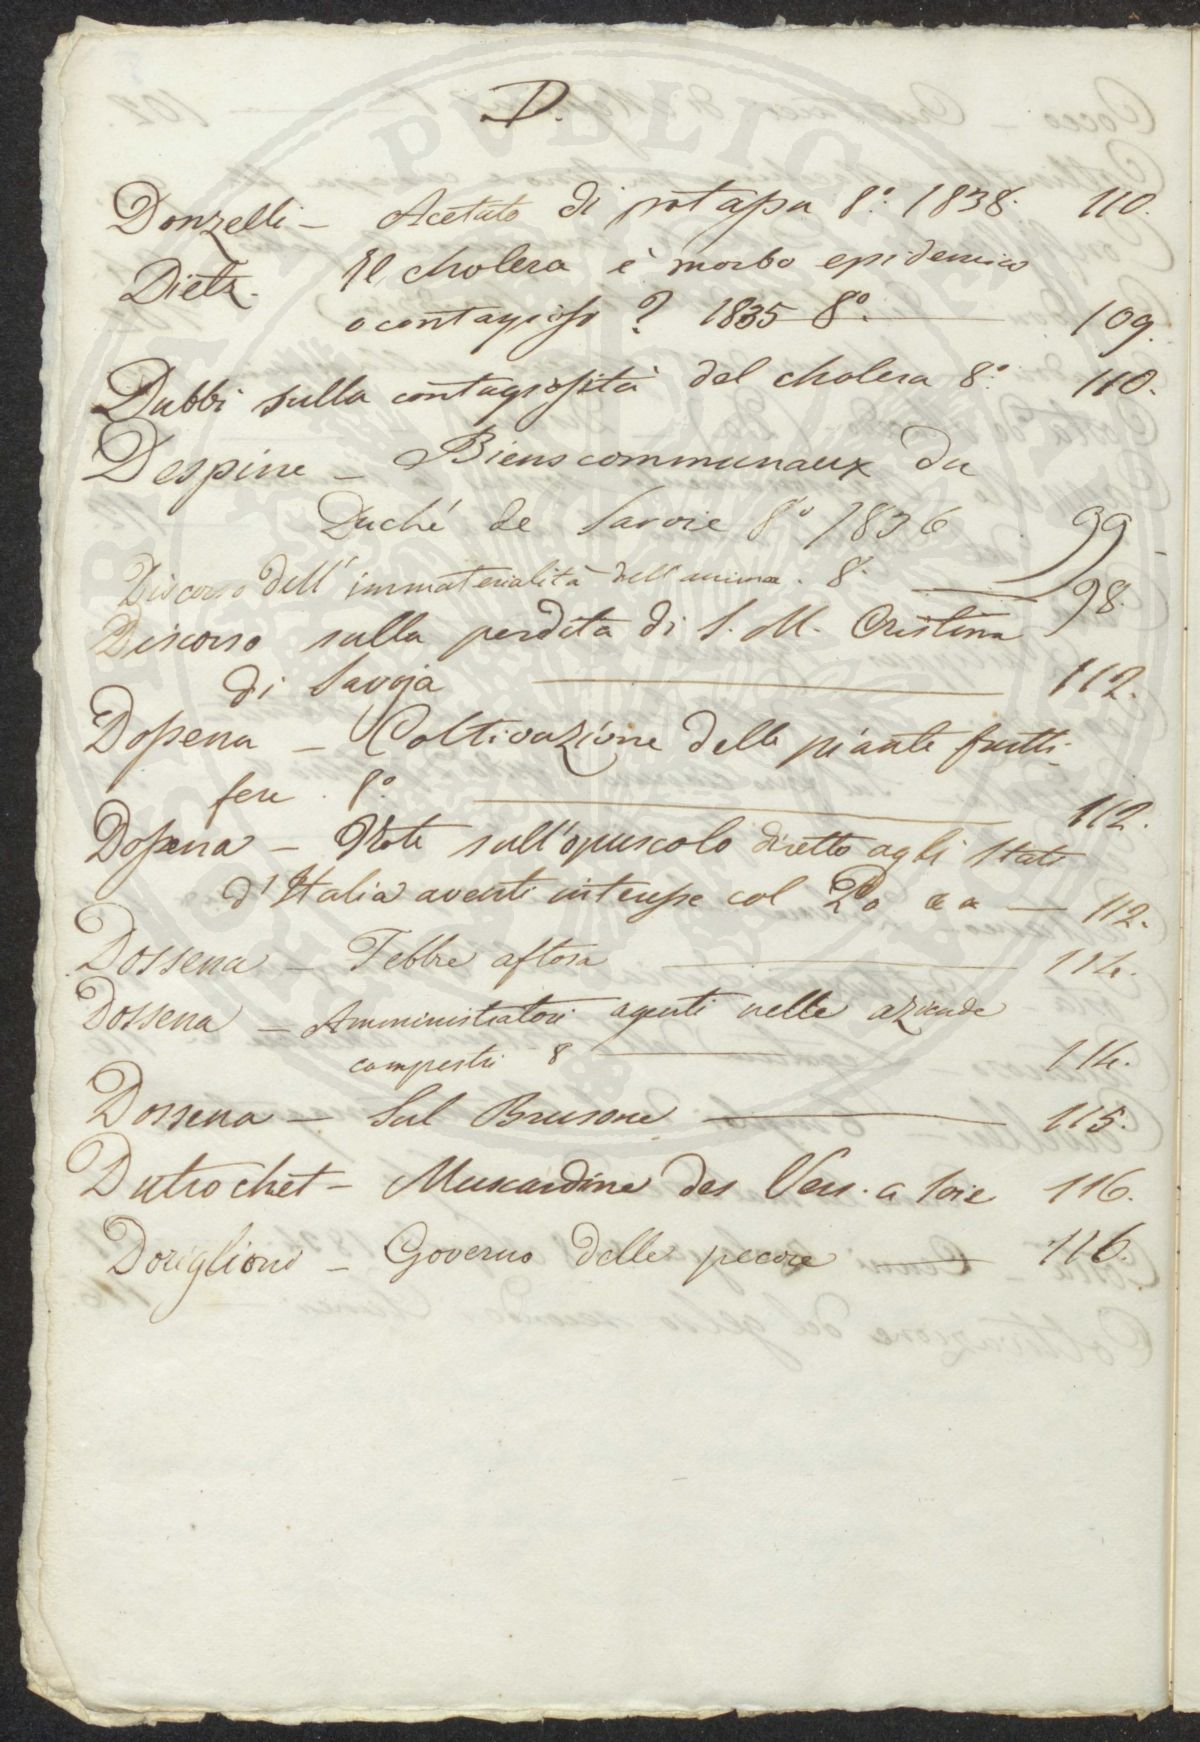 D.
Donzelli – Acetato di potassa 8.° 1838. 110.
Dietz. Il cholera è morbo epidemico
o contagioso? 1835 8°. 109.
Dubbi sulla contagiosità del cholera 8.° 110.
Despine – Biens communaux du
Duché de Savoie 8° 1836 99
Discorso dell' immaterialità dell'anima. 8.° 98.
Discorso sulla perdita di S. M. Cristina
di Savoja 112.
Dossena – Coltivazione delle piante frutti-
fere. 8.° 112.
Dossena – Note sull'opuscolo diretto agli Stati
d'Italia aventi interesse col Po – 112.
Dossena – Febbre aftosa 114.
Dossena – Amministratori agenti nelle aziende
campestri 8 114.
Dossena – Sul Brusone 115.
Dutrochet – Muscardine des Vers. a soie 116.
Doriglioni – Governo delle pecore 116.